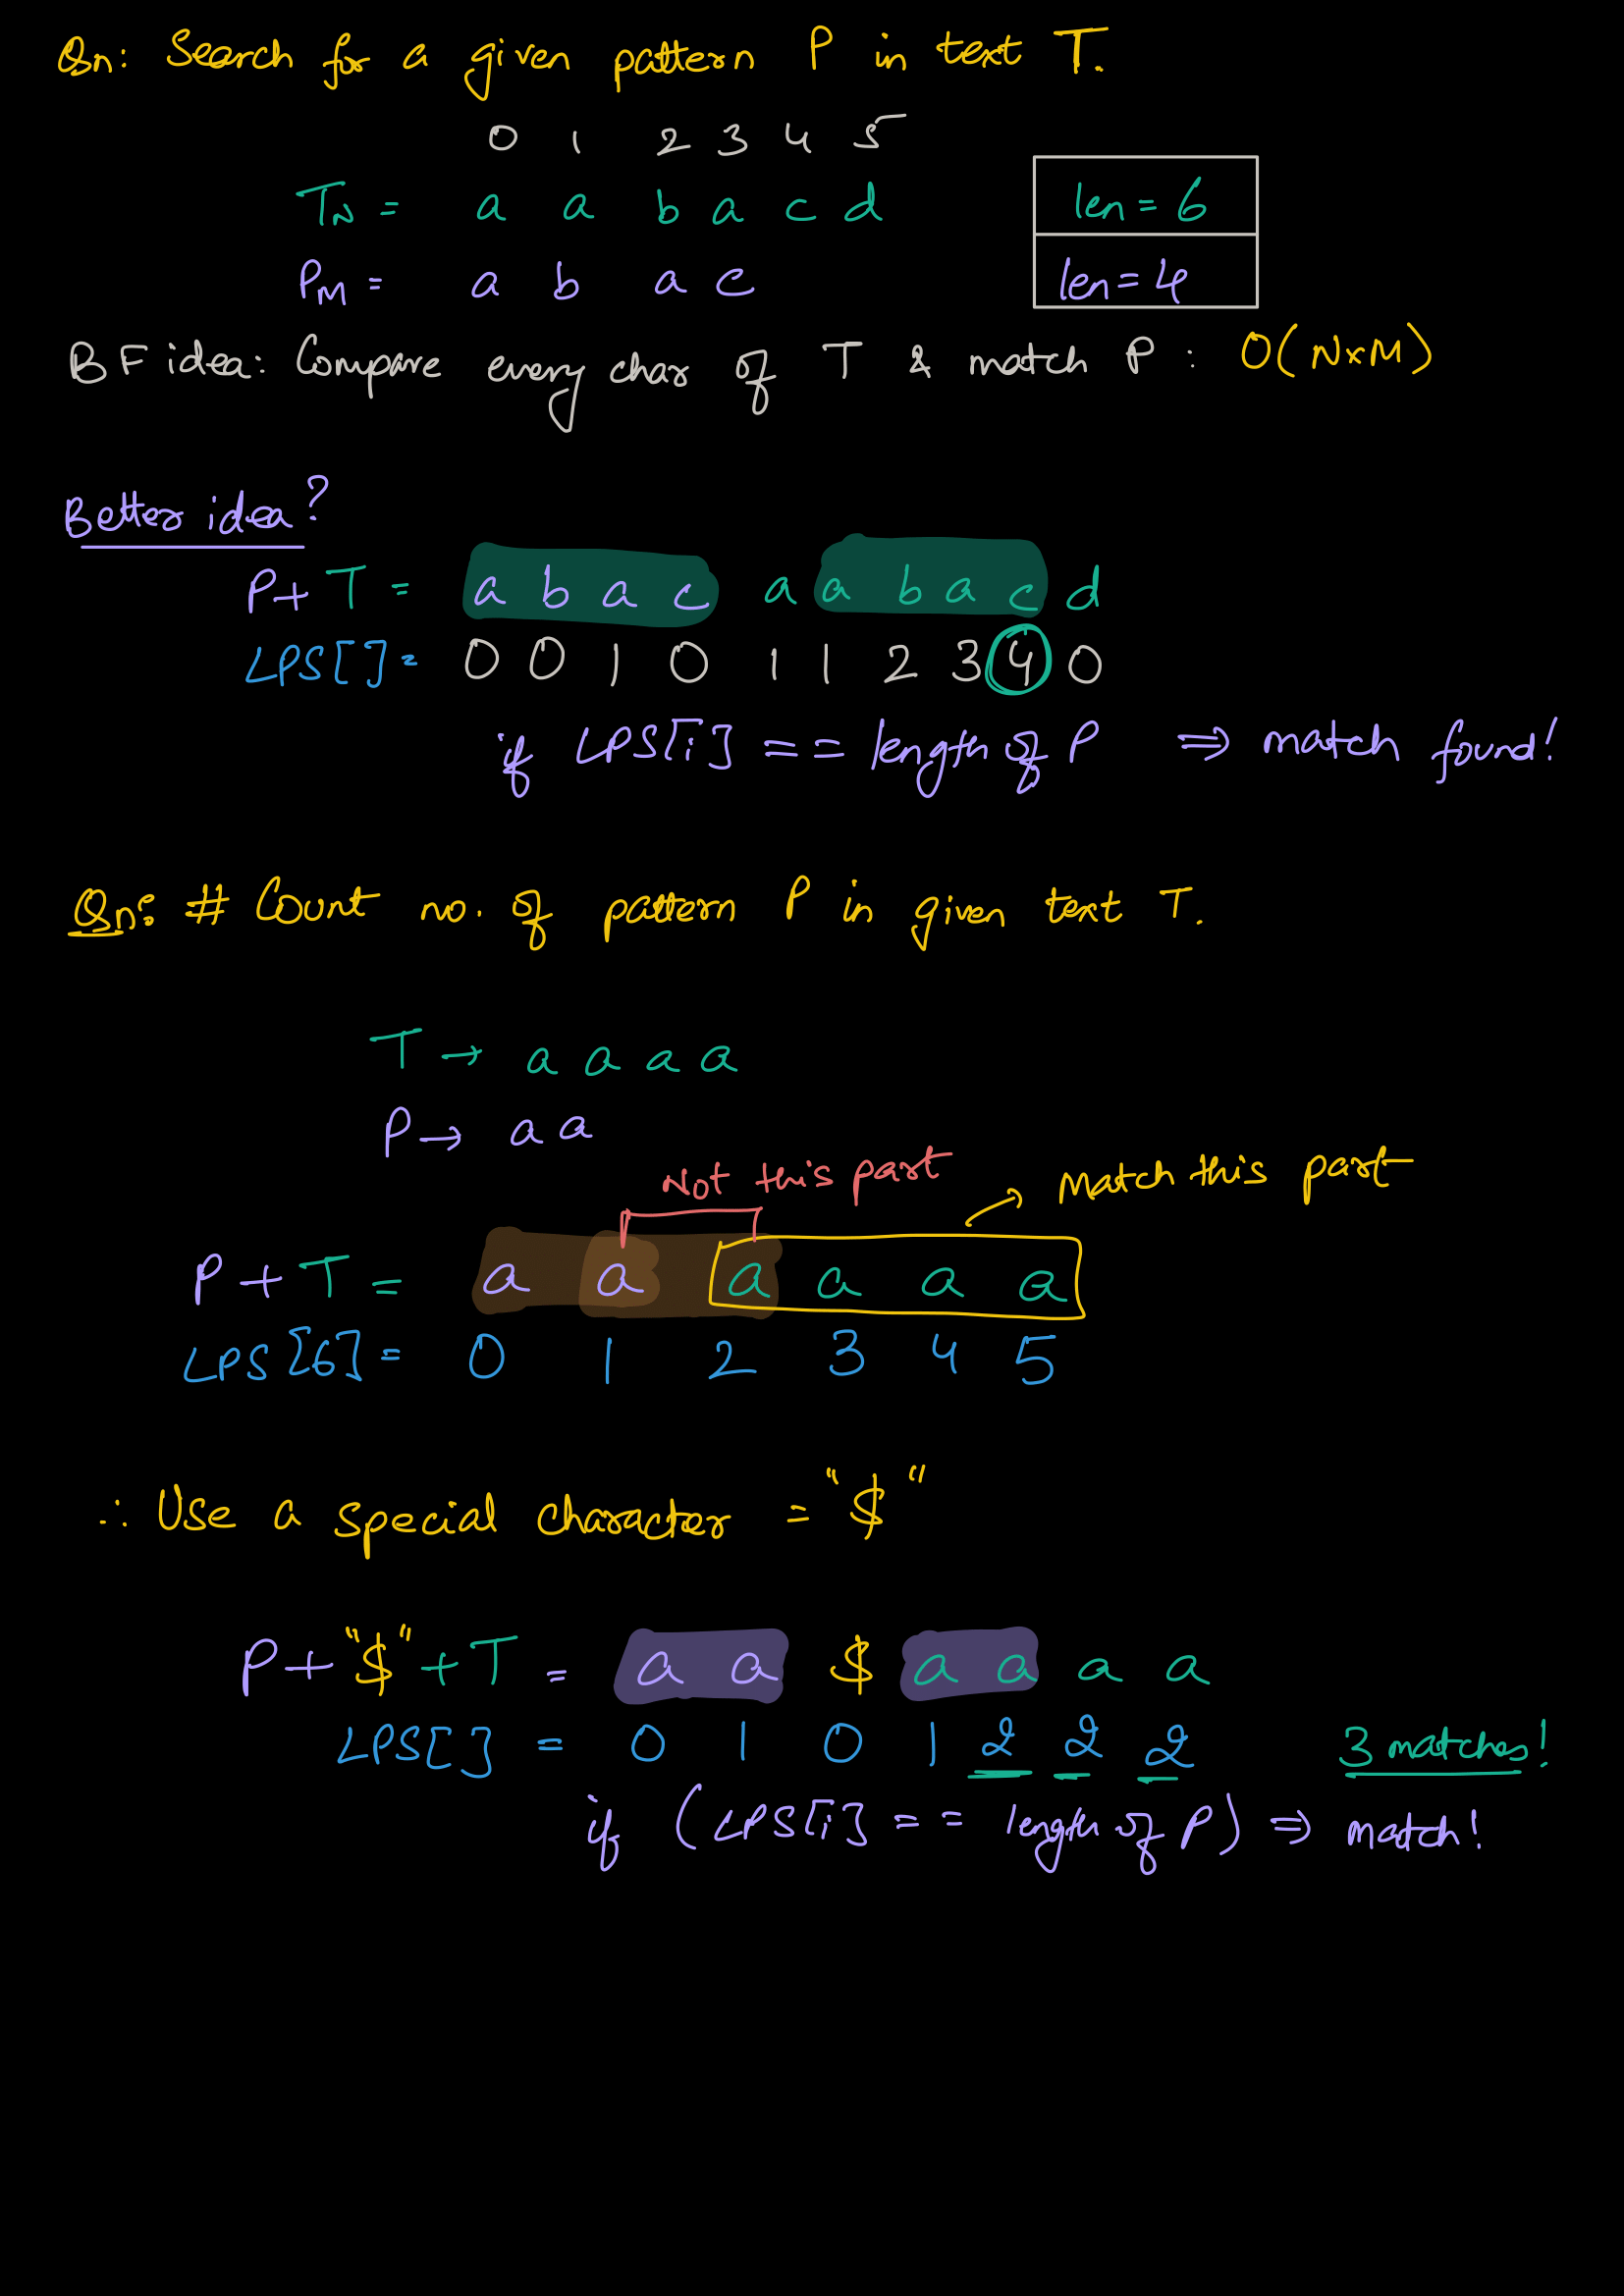 Qn: Search for a given pattern P in text T.
0 1 2 3 4 5
TN = a a b a c d
len = 6
PM = a b a c
len = 4
BF idea: Compare every char of T & match P : O(N×M)
Better idea?
P+T = a b a c a a b a c d
LPS[]= 0 0 1 0 1 1 2 3 4 0
if LPS[i] == length of P ⇒ match found!
Qn: # Count no. of pattern P in given text T.
T → a a a a
P → a a
Not this part
→ Match this part
P + T = a a a a a a
LPS[6] = 0 1 2 3 4 5
∴ Use a special character = "$"
P+"$"+T = a a $ a a a a
LPS[] = 0 1 0 1 2 2 2
3 matches!
if (LPS[i] == length of P) ⇒ match!